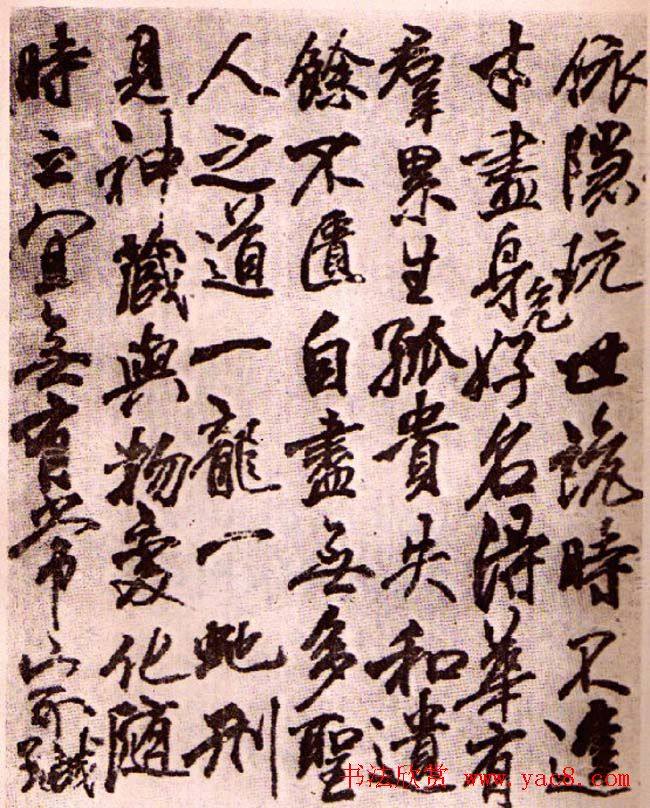 依隱玩世詭時不逢
才盡身危好名得華有
羣累生孤貴失和遺
餘不匱自盡無多聖
人之道一龍一虵形
見神藏與物變化隨
時之宜無有常家
书法欣赏 www.yac8.com